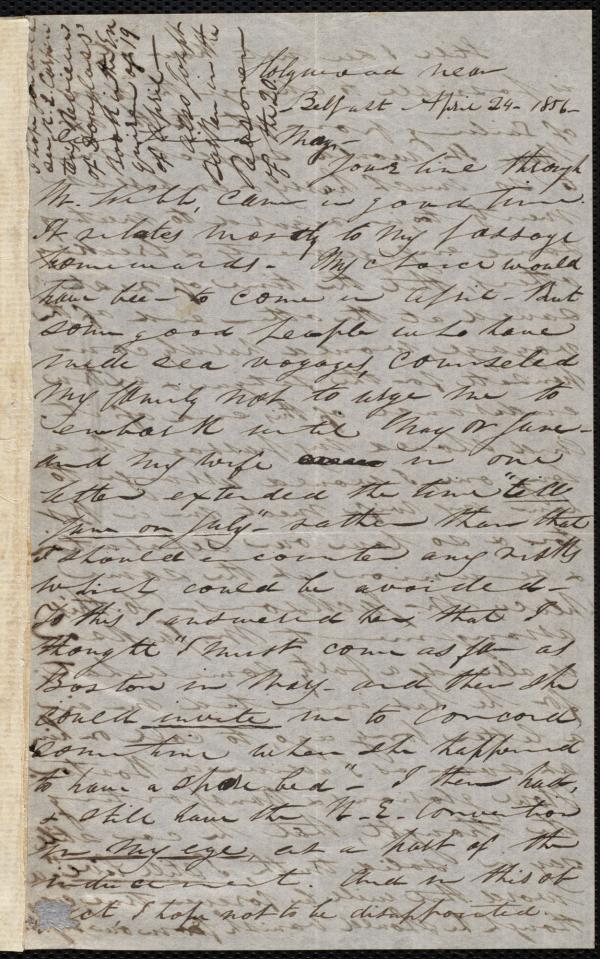 I hope
see R. L. Carpen
ter's Reviews
of Douglass'
book in the In
quirer of 19
of April -
also first
in the
Reasoner
of the 20
Holywood near
Belfast - April 24 - 1856 -
May -
Your line through
Mr. Webb, came in good time.
It relates mostly to my passage
homewards - My choice would
have been to come in April - But
some good people who have
made sea voyages, counseled
my family not to urge me to
embark until May or June -
and my wife in one
letter extended the time "till
June or July" - rather than that
I should encounter any risks
which could be avoided -
To this I answered her that I
thought "I must come as far as
Boston in May - and then she
could invite me to Concord
sometime when she happened
to have a spare bed" - I then had,
& still have the N. E. Convention
in my eye, as a part of the
inducement. And in this ob
ject, I hope not to be disappointed.